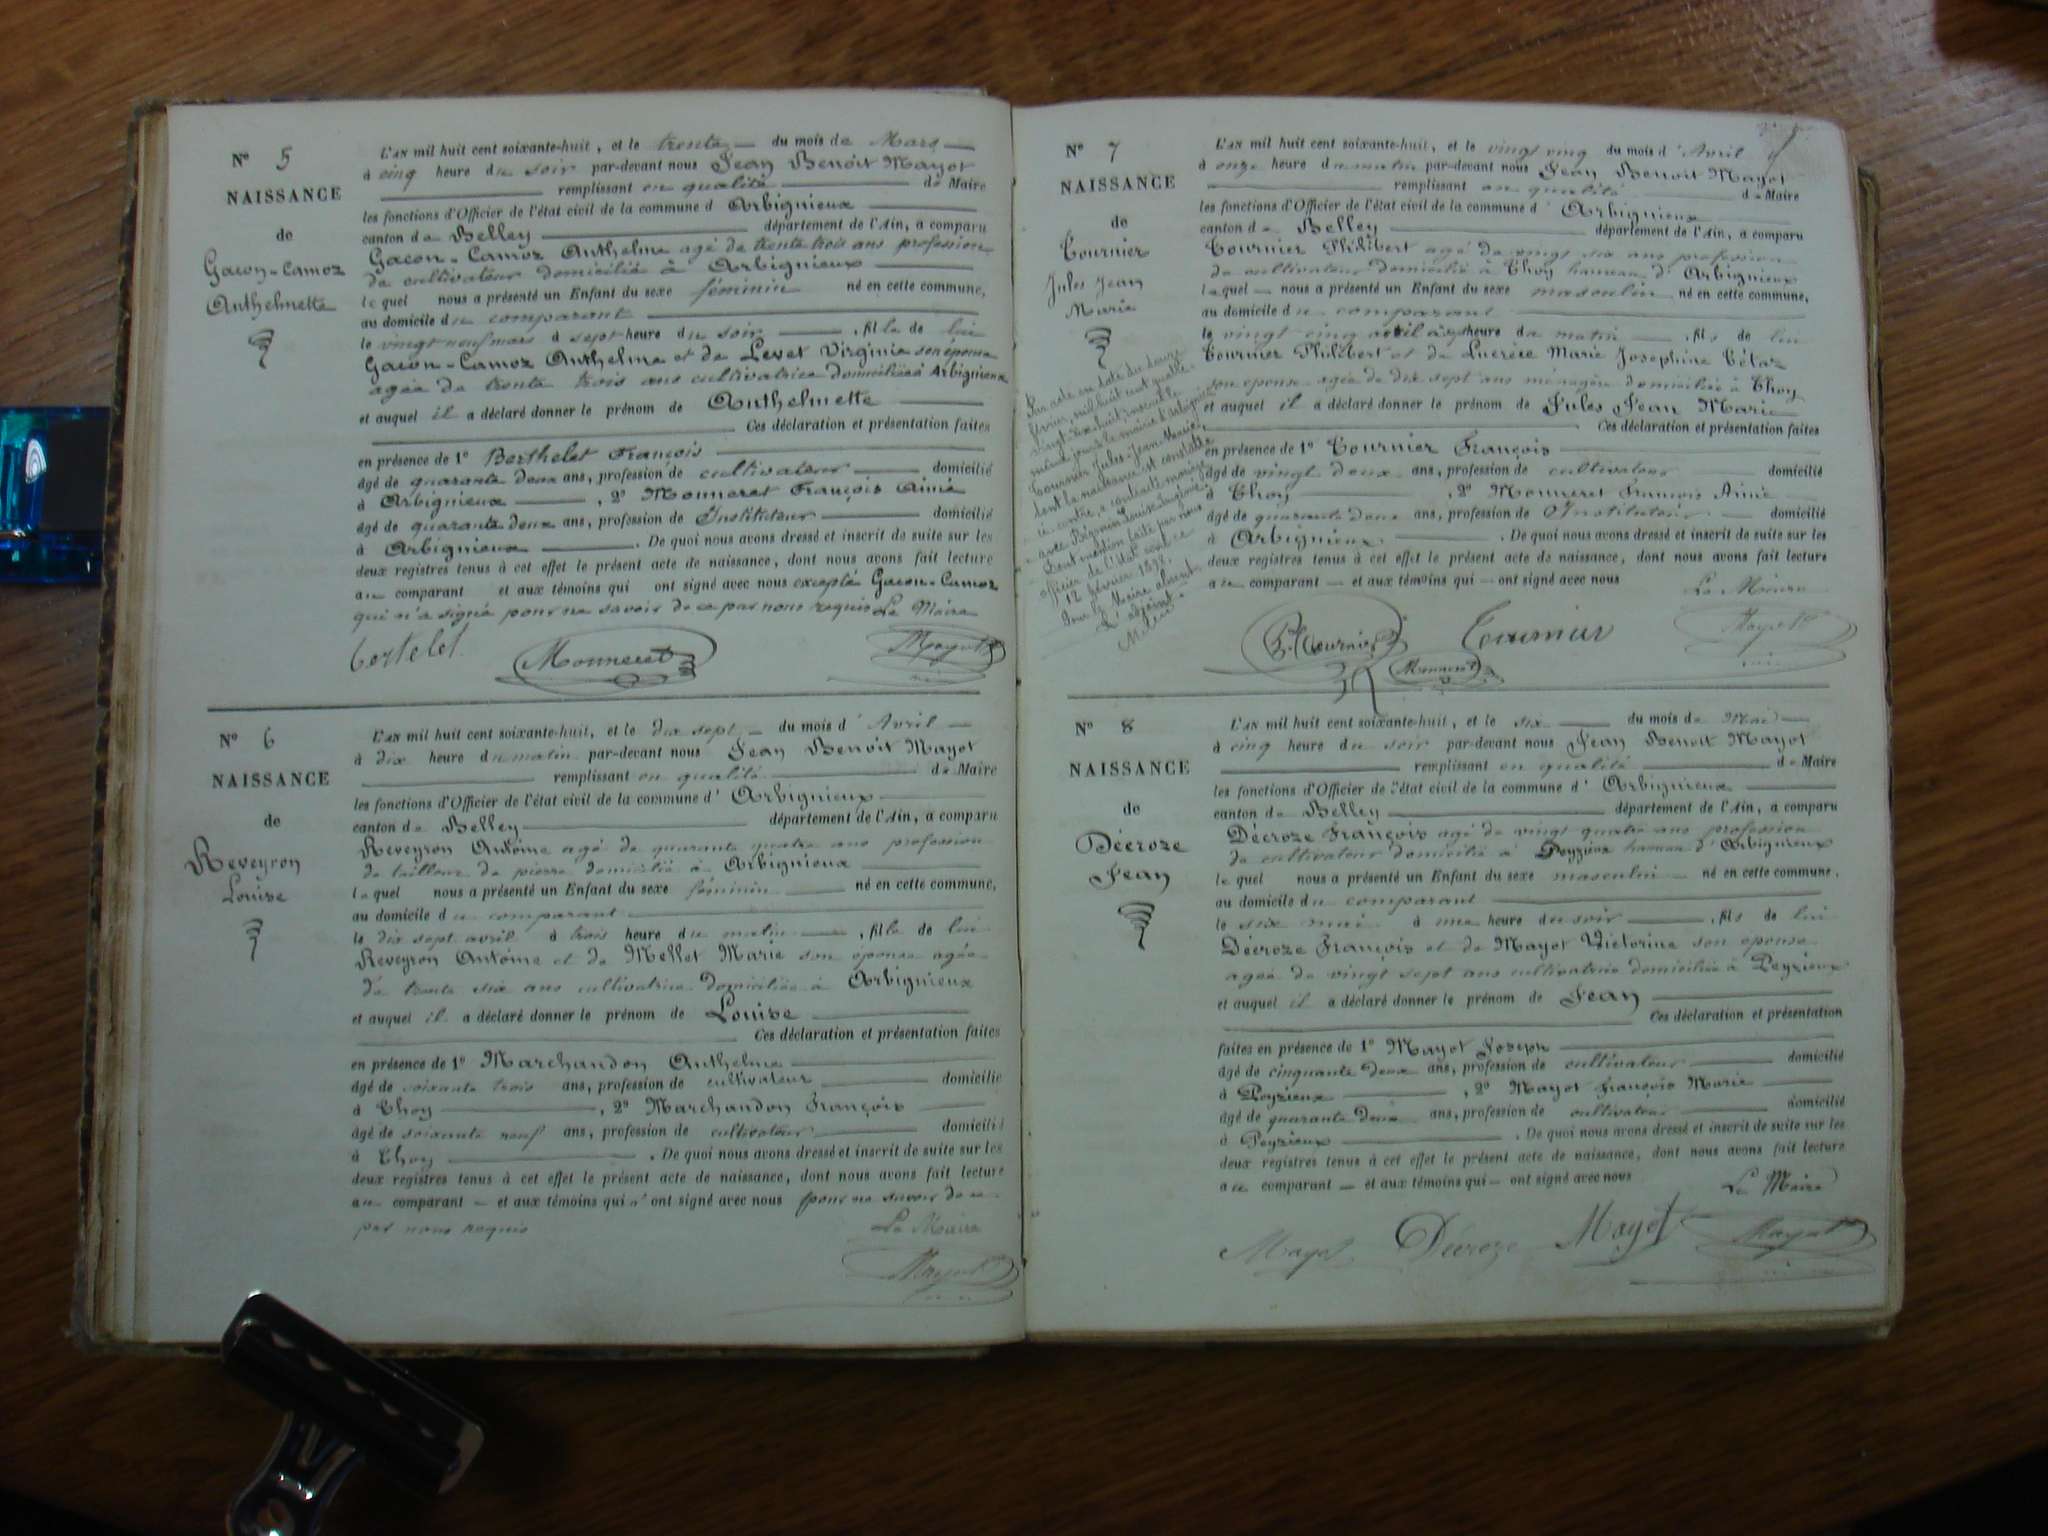 N° 5
NAISSANCE
de
Gacon-Camoz
Anthelmette
L'AN mil huit cent soixante-huit, et le trente du mois de Mars
à cinq heure du soir par-devant nous Jean Benoit Mayot
remplissant en qualité de Maire
les fonctions d'Officier de l'état civil de la commune d'Arbignieux
canton de Belley département de l'Ain, a comparu
Gacon-Camoz Anthelme agé de trente trois ans profession
de cultivateur domicilié à Arbignieux
lequel nous a présenté un Enfant du sexe féminin né en cette commune,
au domicile du comparant
le vingt neuf mars à sept heure du soir, fille de lui
Gacon-Camoz Anthelme et de Levet Virginie son épouse
agée de trente trois ans cultivatrice domiciliée à Arbignieux
et auquel il a déclaré donner le prénom de Anthelmette
Ces déclaration et présentation faites
en présence de 1° Berthelet François
âgé de quarante deux ans, profession de cultivateur domicilié
à Arbignieux, 2° Monneret François Aimé
âgé de quarante deux ans, profession de Instituteur domicilié
à Arbignieux. De quoi nous avons dressé et inscrit de suite sur les
deux registres tenus à cet effet le présent acte de naissance, dont nous avons fait lecture
au comparant et aux témoins qui ont signé avec nous excepté Gacon-Camoz
qui n'a signé pour ne savoir de ce par nous requis Le Maire
bertelet Monneret Mayot
N° 6
NAISSANCE
de
Reveyron
Louise
L'AN mil huit cent soixante-huit, et le dix sept du mois d'Avril
à dix heure du matin par-devant nous Jean Benoit Mayot
remplissant en qualité de Maire
les fonctions d'Officier de l'état civil de la commune d'Arbignieux
canton de Belley département de l'Ain, a comparu
Reveyron Antoine agé de quarante quatre ans profession
de tailleur de pierre domicilié à Arbignieux
lequel nous a présenté un Enfant du sexe féminin né en cette commune,
au domicile du comparant
le dix sept avril à trois heure du matin, fille de lui
Reveyron Antoine et de Mellet Marie son épouse agée
de trente six ans cultivatrice domiciliée à Arbignieux
et auquel il a déclaré donner le prénom de Louise
Ces déclaration et présentation faites
en présence de 1° Marchandon Anthelme
âgé de soixante trois ans, profession de cultivateur domicilié
à Thoy, 2° Marchandon François
âgé de soixante neuf ans, profession de cultivateur domicilié
à Thoy. De quoi nous avons dressé et inscrit de suite sur les
deux registres tenus à cet effet le présent acte de naissance, dont nous avons fait lecture
au comparant et aux témoins qui n'ont signé avec nous pour ne savoir de ce
par nous requis Le Maire
Mayot
N° 7
NAISSANCE
de
Tournier
Jules Jean
Marie
L'AN mil huit cent soixante-huit, et le vingt cinq du mois d'Avril
à onze heure du matin par-devant nous Jean Benoit Mayot
remplissant en qualité de Maire
les fonctions d'Officier de l'état civil de la commune d'Arbignieux
canton de Belley département de l'Ain, a comparu
Tournier Philibert agé de vingt six ans profession
de cultivateur domicilié à Thoy hameau d'Arbignieux
lequel nous a présenté un Enfant du sexe masculin né en cette commune,
au domicile du comparant
le vingt cinq avril à heure du matin, fils de lui
Tournier Philibert et de Lucrèce Marie Josephine Tétaz
son épouse agée de dix sept ans ménagère domiciliée à Thoy
et auquel il a déclaré donner le prénom de Jules Jean Marie
Ces déclaration et présentation faites
en présence de 1° Tournier François
âgé de vingt deux ans, profession de cultivateur domicilié
à Thoy, 2° Monneret François Aimé
âgé de quarante deux ans, profession de Instituteur domicilié
à Arbignieux. De quoi nous avons dressé et inscrit de suite sur les
deux registres tenus à cet effet le présent acte de naissance, dont nous avons fait lecture
au comparant et aux témoins qui ont signé avec nous
Le Maire
Ph Tournier Tournier Mayot
Monneret
Par acte en date du douze
février, mil huit cent quatre-
vingt-dix-huit, inscrit le
même jour à la mairie d'Arbignieux
Tournier Jules-Jean-Marie,
dont la naissance est constatée
ci-contre, a contracté mariage
avec Louise Eugénie.
Dont mention faite par nous
officier de l'Etat civil ce
12 février 1898.
Pour le Maire absent
L'adjoint
N° 8
NAISSANCE
de
Décroze
Jean
L'AN mil huit cent soixante-huit, et le six du mois de Mai
à cinq heure du soir par-devant nous Jean Benoit Mayot
remplissant en qualité de Maire
les fonctions d'Officier de l'état civil de la commune d'Arbignieux
canton de Belley département de l'Ain, a comparu
Décroze François agé de vingt quatre ans profession
de cultivateur domicilié à Peyzieux hameau d'Arbignieux
lequel nous a présenté un Enfant du sexe masculin né en cette commune,
au domicile du comparant
le six mai à une heure du soir, fils de lui
Décroze François et de Mayot Victorine son épouse
agée de vingt sept ans cultivatrice domiciliée à Peyzieux
et auquel il a déclaré donner le prénom de Jean
Ces déclaration et présentation
faites en présence de 1° Mayot Joseph
âgé de cinquante deux ans, profession de cultivateur domicilié
à Peyzieux, 2° Mayot François Marie
âgé de quarante deux ans, profession de cultivateur domicilié
à Peyzieux. De quoi nous avons dressé et inscrit de suite sur les
deux registres tenus à cet effet le présent acte de naissance, dont nous avons fait lecture
au comparant et aux témoins qui ont signé avec nous
Le Maire
Mayot Décroze Mayot Mayot